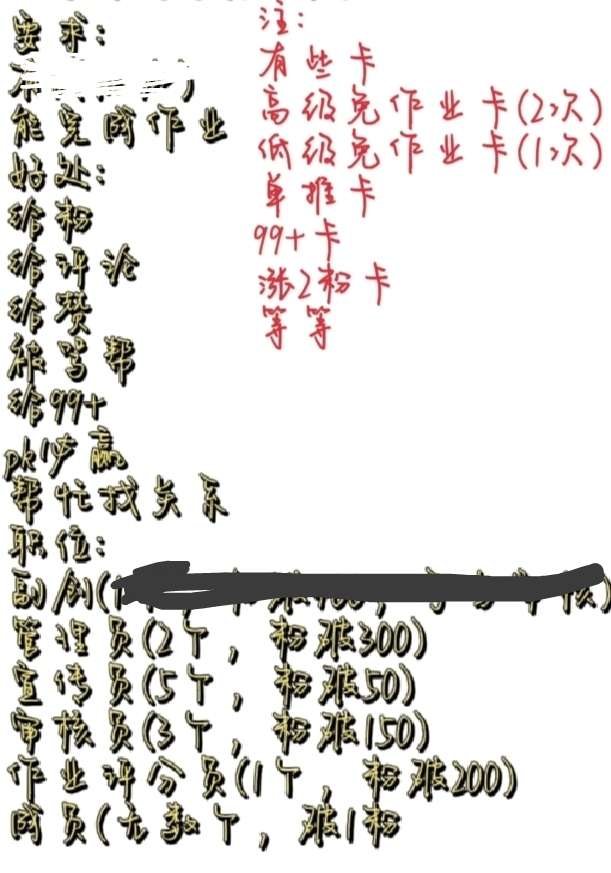 要求:
能完成作业
好处:
给粉
给评论
给赞
被骂帮
给99+
pk1岁赢
帮忙找关系
职位:
副创(1
管理员(2个，粉破300)
宣传员(5个，粉破50)
审核员(3个，粉破150)
作业评分员(1个，粉破200)
成员(无数个，破1粉
注:
有些卡
高级免作业卡(2次)
低级免作业卡(1次)
单推卡
99+卡
涨2粉卡
等等